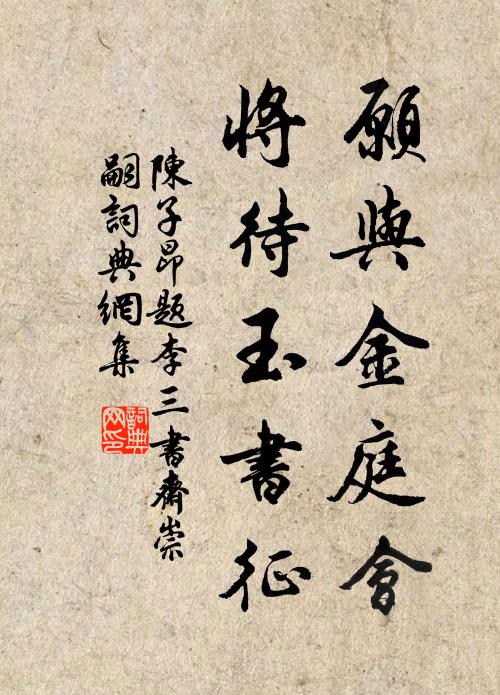 願與金庭會
將待玉書征
陳子昂題李三書齋崇
嗣詞典網集
詞典
网印